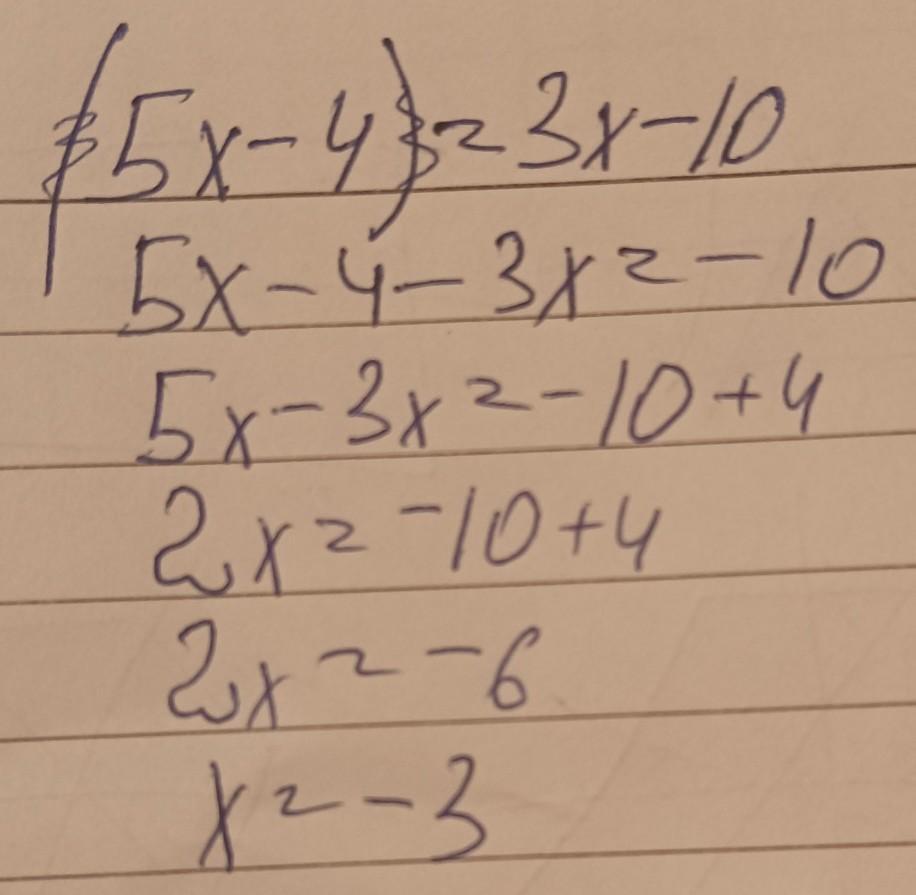 5x-4=3x-10
5x-4-3x=-10
5x-3x=-10+4
2x=-10+4
2x=-6
x=-3